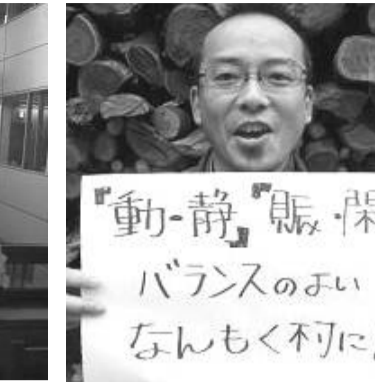 『動・静』『賑・閑
バランスのよい
なんもく村に